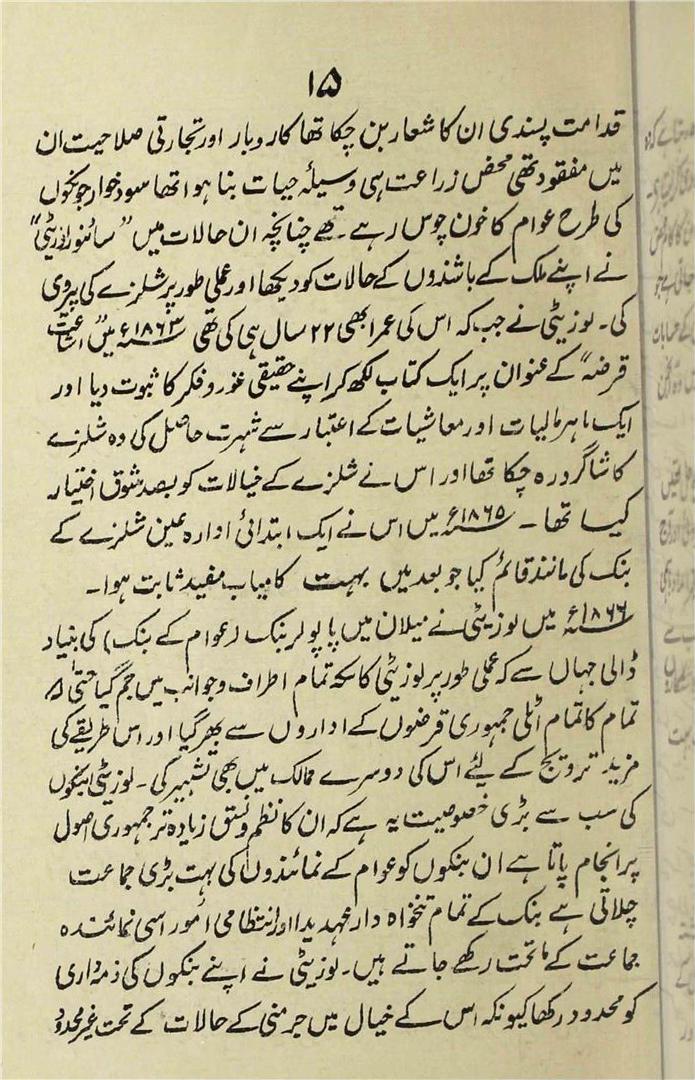 ۱۵
قدامت پسندی ان کا شعار بن چکا تھا کاروبار اور تجارتی صلاحیت ان
میں مفقود تھی محض زراعت ہی وسیلۂ حیات بنا ہوا تھا سود خوار جونکوں
کی طرح عوام کا خون چوس رہے تھے چنانچہ ان حالات میں "سائنور لوزیٹی"
نے اپنے ملک کے باشندوں کے حالات کو دیکھا اور عملی طور پر شلزے کی پیروی
کی۔ لوزیٹی نے جب کہ اس کی عمر ابھی ۲۲ سال ہی کی تھی ۱۸۶۳ء میں "اشاعت
قرضہ" کے عنوان پر ایک کتاب لکھ کر اپنے حقیقی غور و فکر کا ثبوت دیا اور
ایک ماہر مالیات اور معاشیات کے اعتبار سے شہرت حاصل کی وہ شلزے
کا شاگرد رہ چکا تھا اور اس نے شلزے کے خیالات کو بصد شوق اختیار
کیا تھا۔ ۱۸۶۵ء میں اس نے ایک ابتدائی ادارہ عین شلزے کے
بنک کی مانند قائم کیا جو بعد میں بہت کامیاب مفید ثابت ہوا۔
۱۸۶۶ء میں لوزیٹی نے میلان میں پاپولر بنک (عوام کے بنک) کی بنیاد
ڈالی جہاں سے کہ عملی طور پر لوزیٹی کا سکہ تمام اطراف و جوانب میں جم گیا حتیٰ کہ
تمام کا تمام اٹلی جمہوری قرضوں کے اداروں سے بھر گیا اور اس طریقے کی
مزید ترویج کے لئے اس کی دوسرے ممالک میں بھی تشہیر کی۔ لوزیٹی بنکوں
کی سب سے بڑی خصوصیت یہ ہے کہ ان کا نظم و نسق زیادہ تر جمہوری اصول
پر انجام پاتا ہے ان بنکوں کو عوام کے نمائندوں کی بہت بڑی جماعت
چلاتی ہے بنک کے تمام تنخواہ دار عہدیدار اور انتظامی امور اسی نمائندہ
جماعت کے ماتحت رکھے جاتے ہیں۔ لوزیٹی نے اپنے بنکوں کی ذمہ داری
کو محدود رکھا کیونکہ اس کے خیال میں جرمنی کے حالات کے تحت غیر محدود